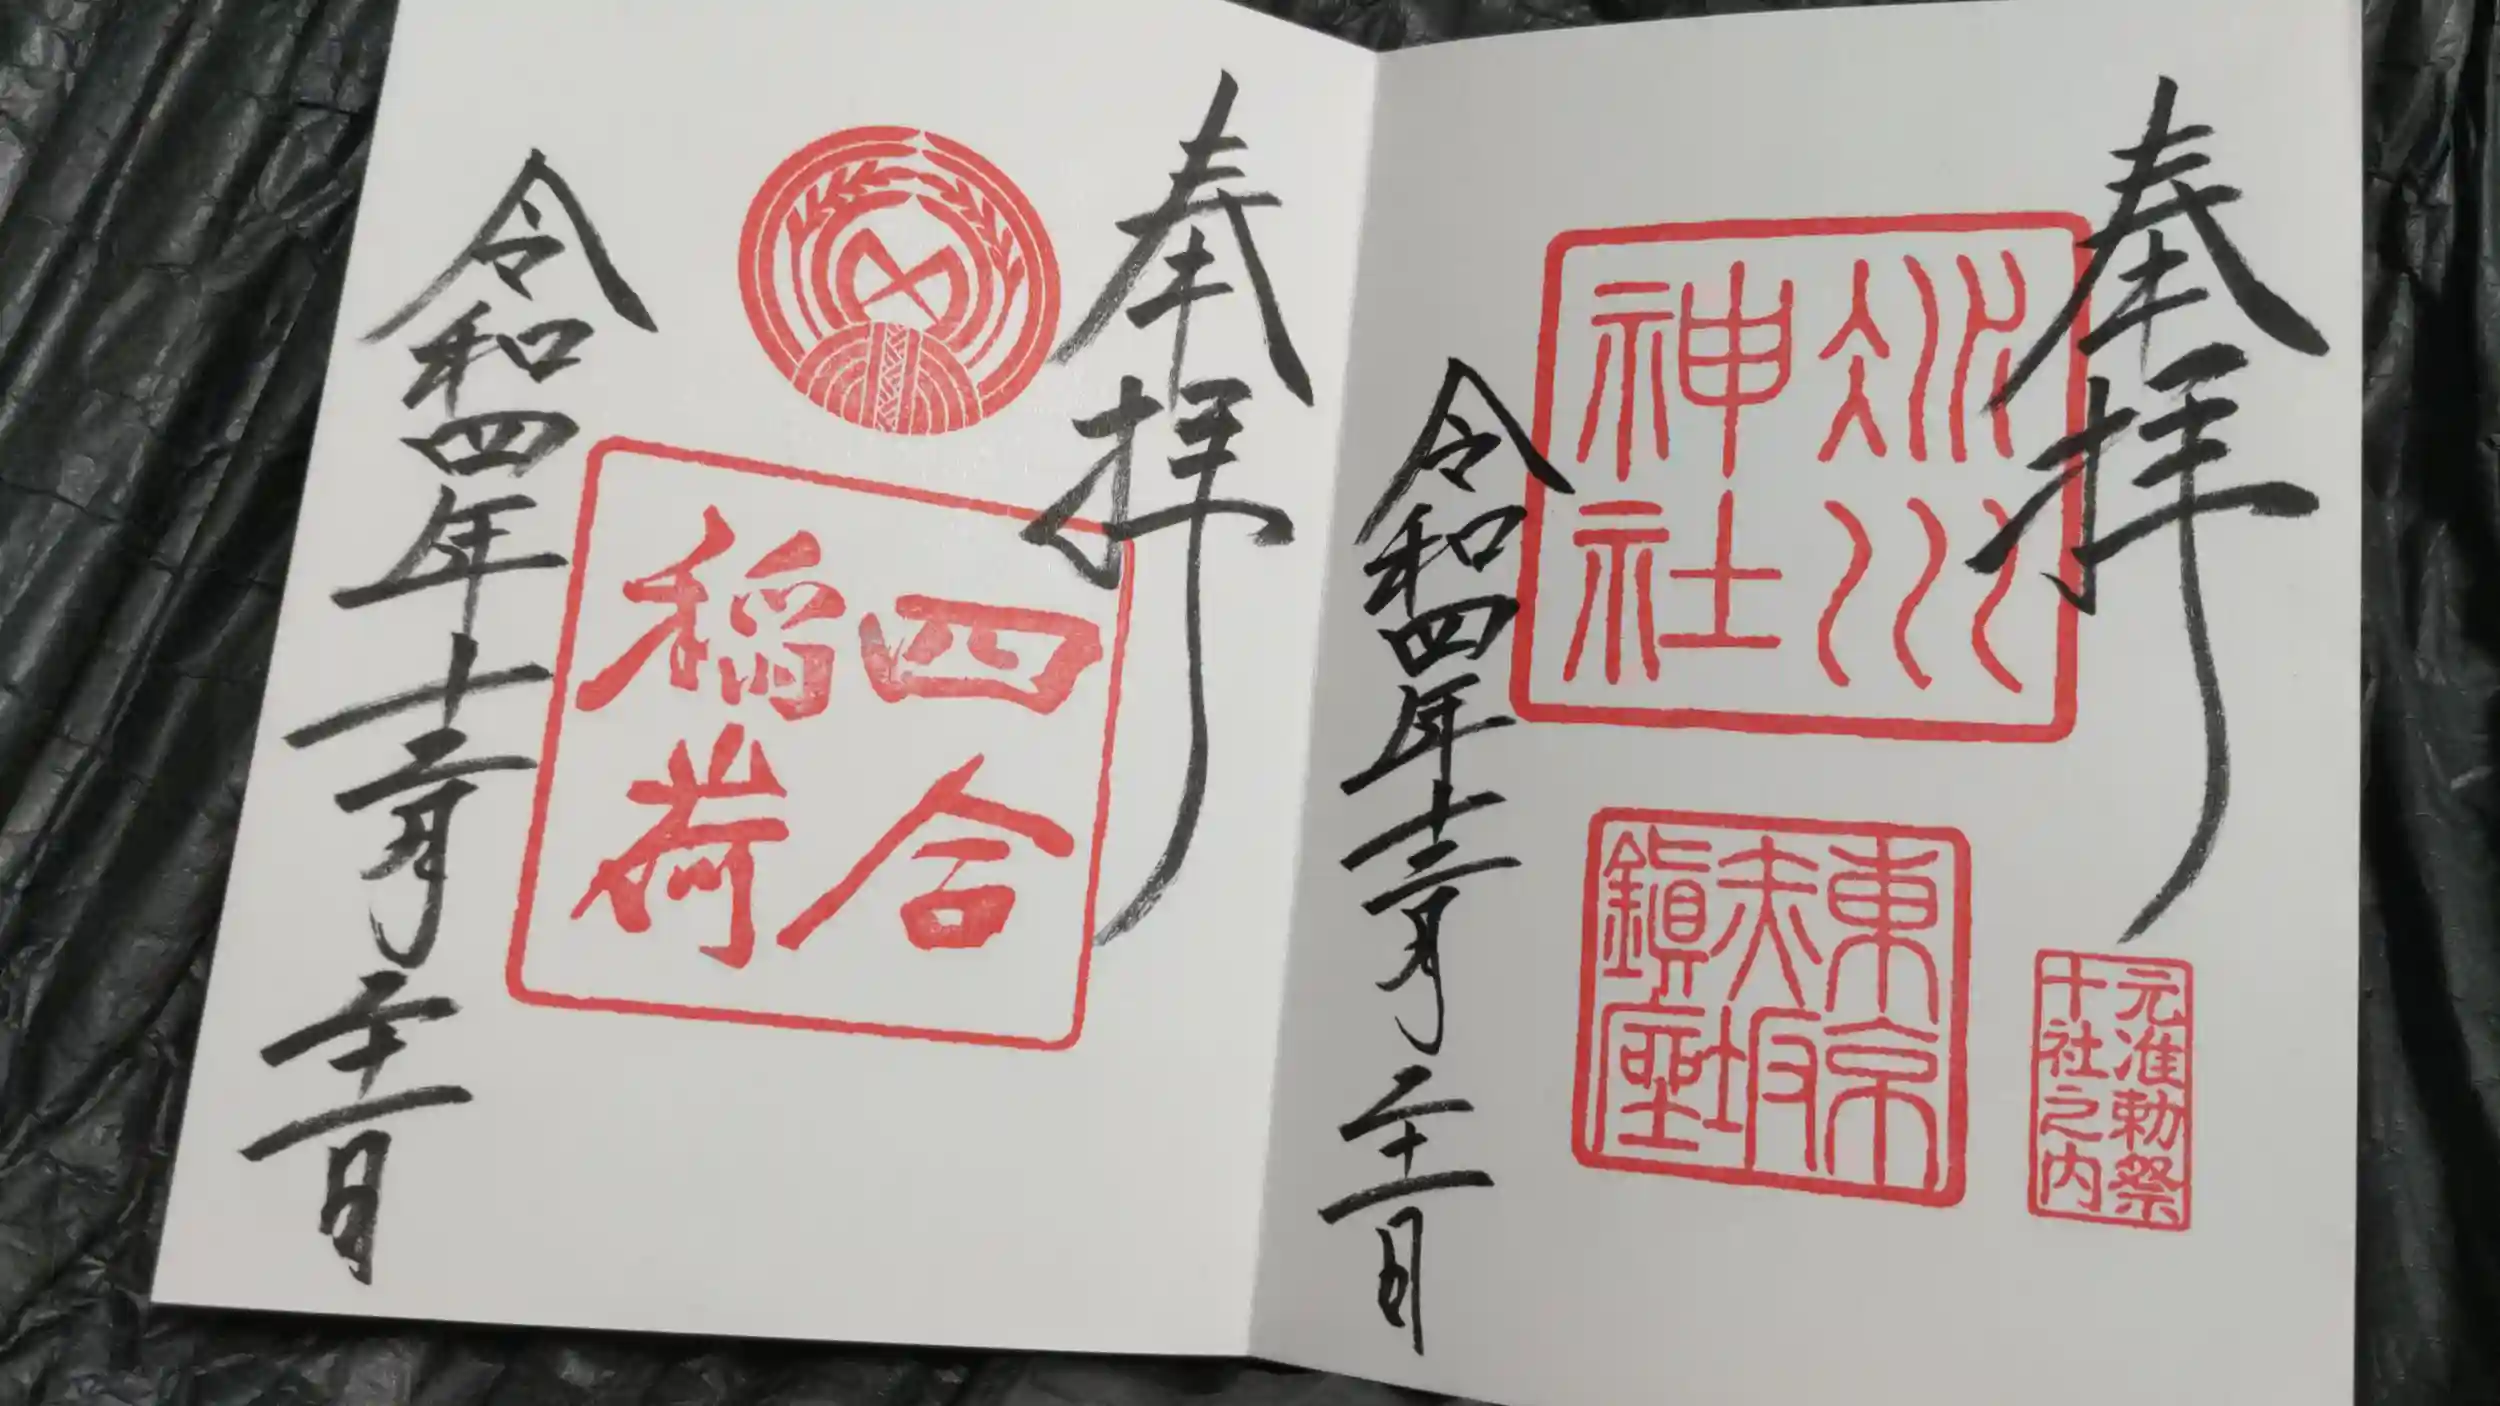 奉拝
氷川
神社
東京
赤坂
鎮座
元准勅祭
十社之内
令和四年十二月二十一日
奉拝
四合
稲荷
令和四年十二月二十一日